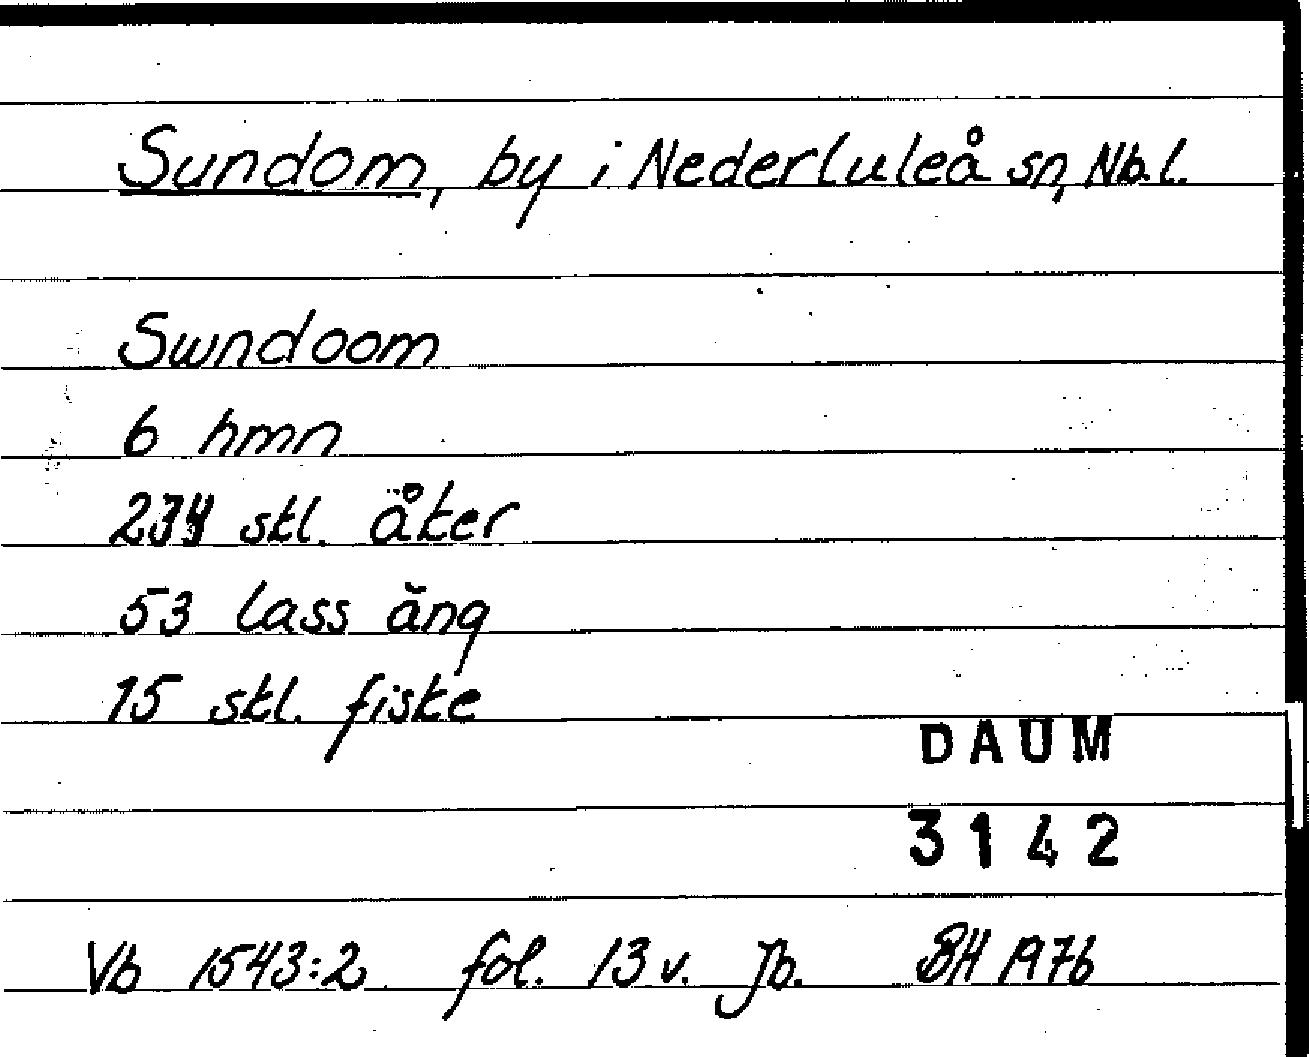 Sundom, by i Nederluleå sn, Nb.l.
Swndoom
6 hmn
stl. åker
53 lass äng
15 stl. fiske
DAUM
3142
Vb 1543:2 fol. 13 v. Jb. BH 1976